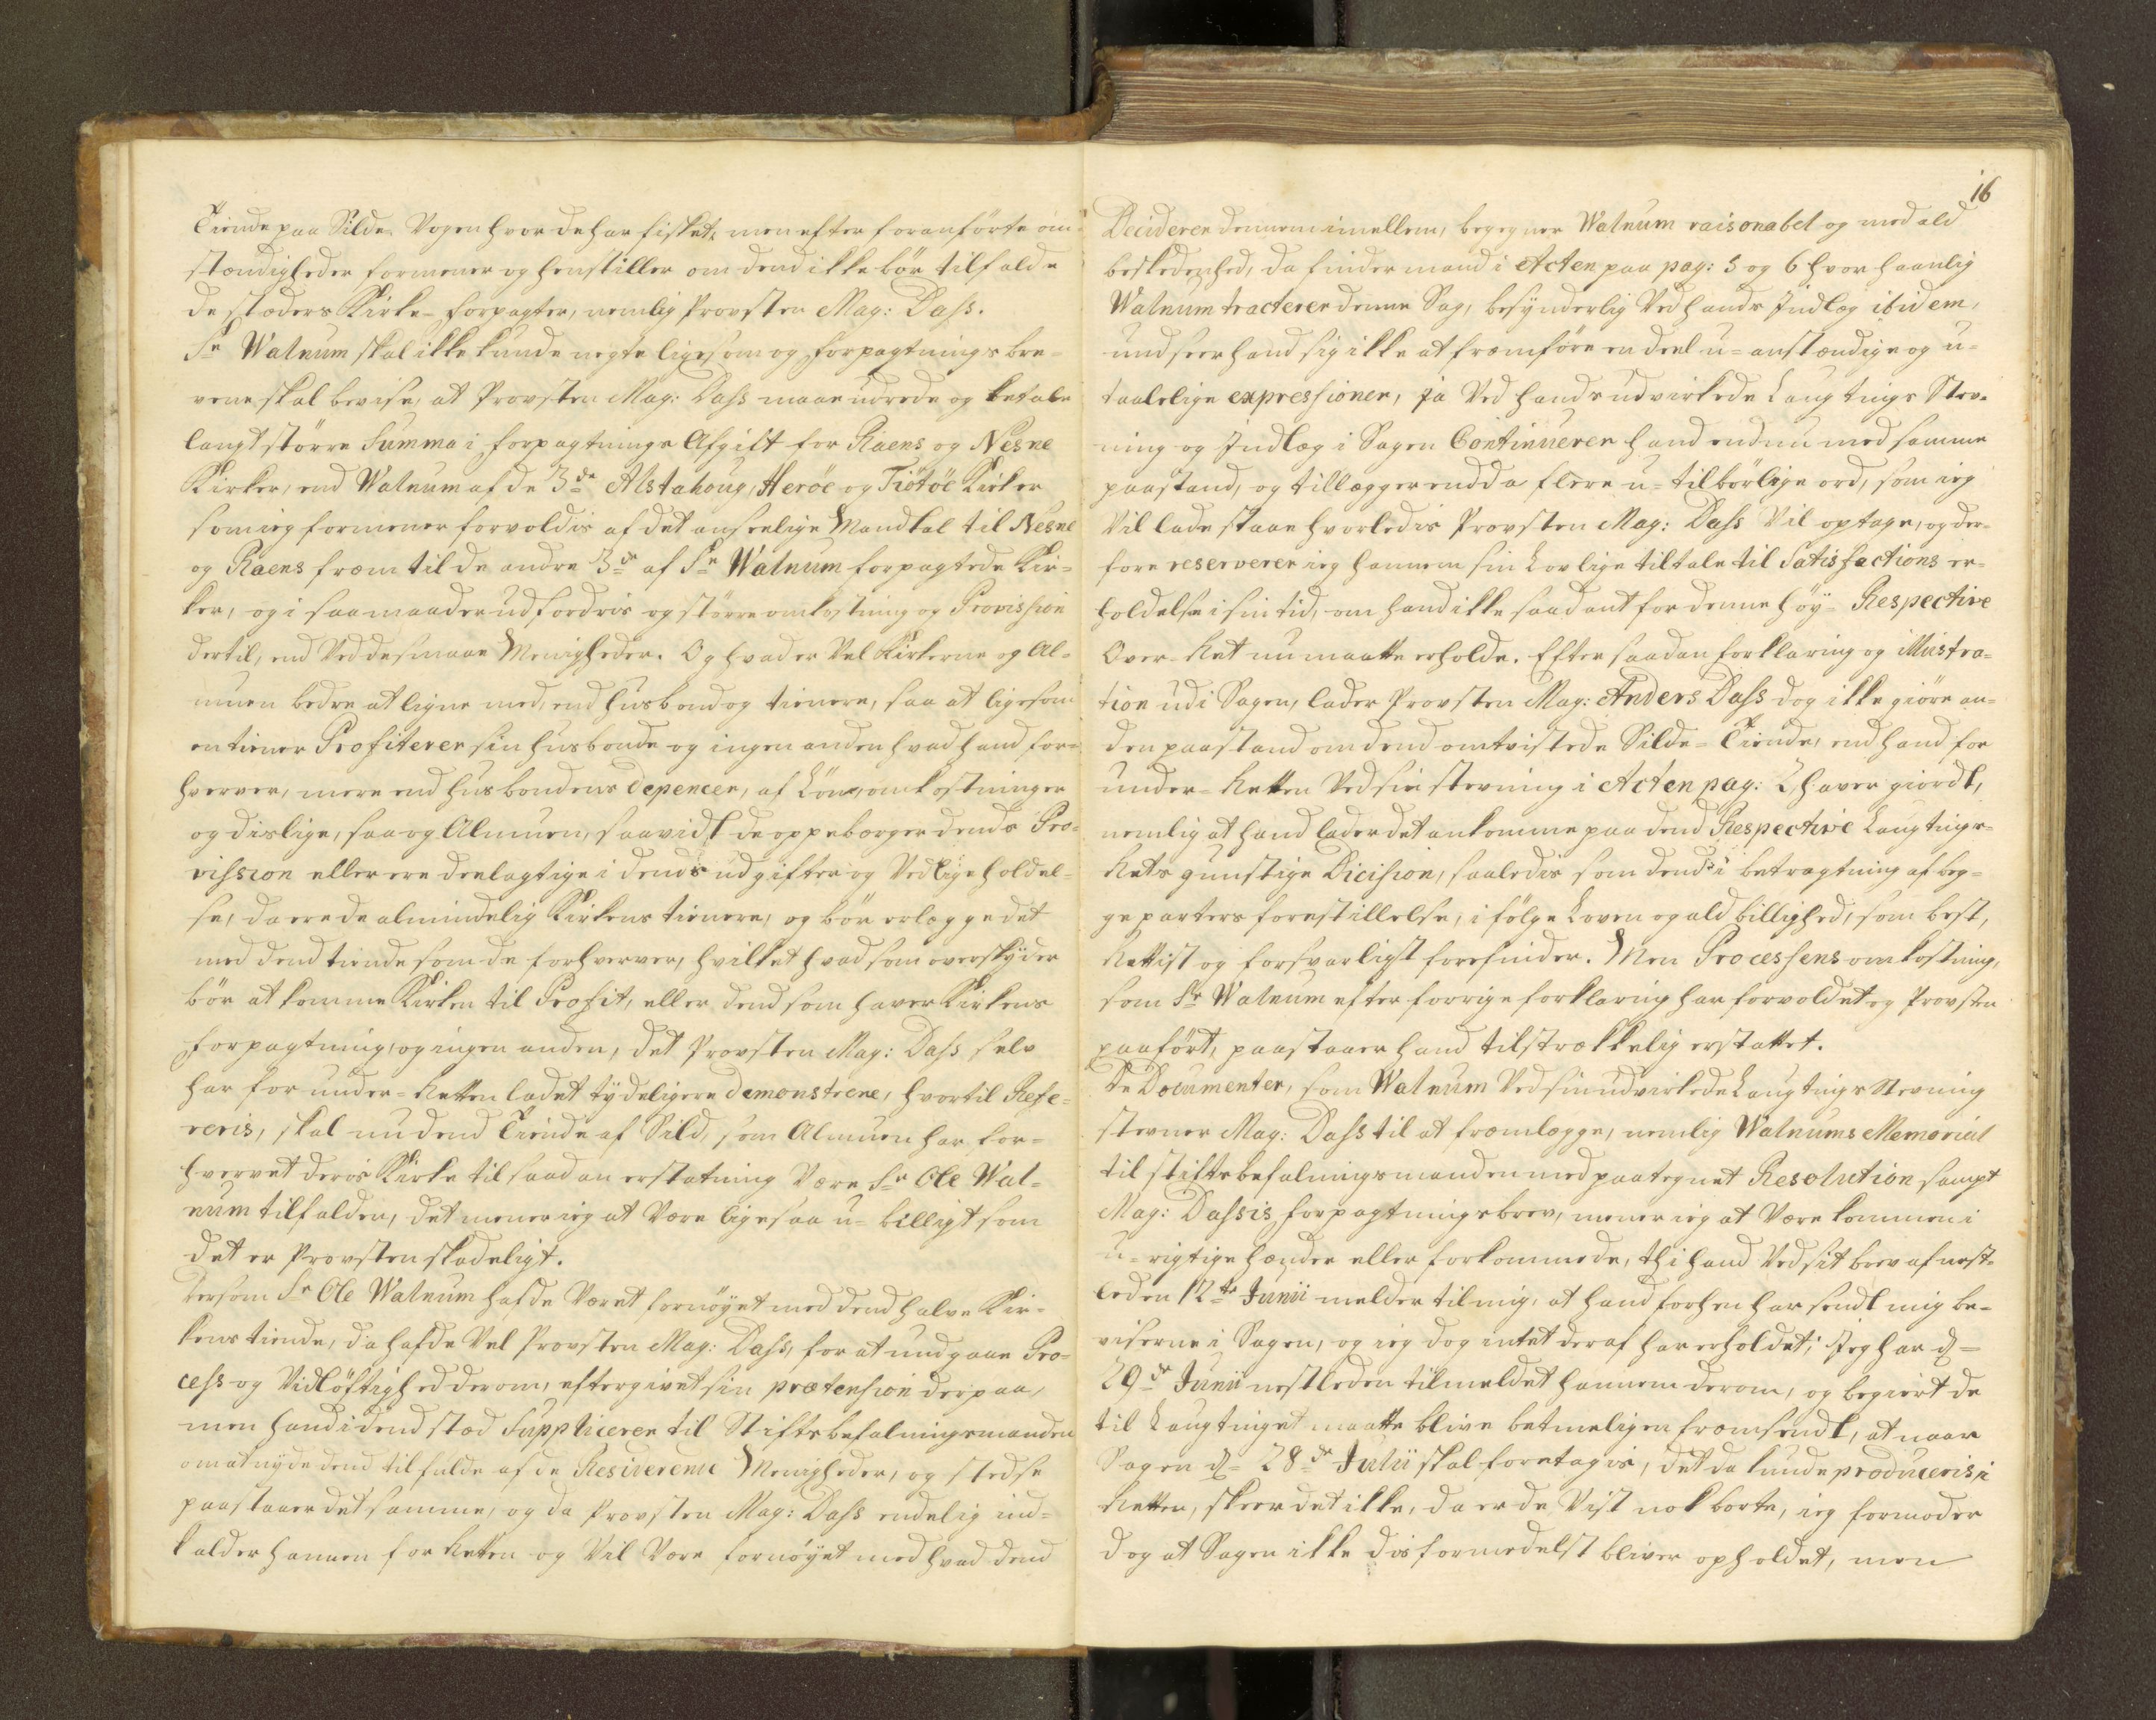 Tiende paa Silde-Vogen hvor de har fisket, men efter foranförte om-
stændigheder formener og henstiller om dend ikke bör tilfalde
de stæders Kirke-forpagter, nemlig Provsten Mag: Dass.
Sr Walnum skal ikke kunde negte ligesom og forpagtnings bre-
vene skal bevise, at Provsten Mag: Dass maae udrede og betale
langt större Summa i forpagtnings Afgift for Raens og Nesne
Kirker, end Walnum af de 3de Alstahoug, Heröe og Tiötöe Kirker
som ieg formener forvoldis af det anseelige Mandtal til Nesne
og Raens frem til de andre 3de af Sr Walnum forpagtede Kir-
ker, og i saa maader udfordris og större omkostning og Provission
dertil, end Ved de smaae Menigheder. Og hvad er Vel Kirkerne og Al-
muen bedre at ligne med, end husbond og tienere, saa at ligesom
en tiener Profiterer sin husbonde og ingen anden hvad hand for-
hverver, mere end husbondens depencer, af Lön, omkostninger
og deslige, saa og Almuen, saavidt de oppebærger dends Pro-
vission eller ere deelagtige i dends udgifter og Vedligeholdel-
se, da ere de almindelig Kirkens tienere, og bör erlegge det
med dend tiende som de forhverver, hvilket hvad som overskyder
bör at komme Kirken til Profit, eller dend som haver Kirkens
forpagtning, og ingen anden, det Provsten Mag: Dass selv
har for under-Retten ladet tydeligere demonstrere, hvortil Refe-
reris, skal nu dend Tiende af Sild, som Almuen har for-
hvervet deris Kirke til saadan erstatning Være Sr Ole Wal-
num tilfalden, det mener ieg at Være ligesaa u-billigt som
det er Provsten skadeligt.
Dersom Sr Ole Walnum hafde Været fornöyet med dend halve Kir-
kens tiende, da hafde Vel Provsten Mag: Dass, for at undgaae Pro-
cess og Vidlöftighed derom, eftergivet sin prætension derpaa,
men hand i dend sted Suppliceren til Stiftsbefalningsmanden
om at nyde dend til fulde af de Residerende Menigheder, og stedse
paastaaer det samme, og da Provsten Mag: Dass endelig ind-
kalder hannem for Retten og Vil Være fornöyet med hvad dend
16
Deciderer dennem imellem, begegner Walnum raisonabel og med ald
beskedenhed, da finder mand i Acten paa pag: 5 og 6 hvor haanlig
Walnum tracterer denne Sag, besynderlig Ved hands Indlæg ibidem,
undseer hand sig ikke at fremföre en deel u-anstændige og u-
taalelige expressioner, ja Ved hands udvirkede Laugtings Stev-
ning og Indlæg i Sagen Continuerer hand endnu med samme
paastand, og tillægger endda flere u-tilbörlige ord, som ieg
Vil lade staae hvorledis Provsten Mag: Dass Vil optage, og der-
fore reserverer ieg hannem sin Lovlige tiltale til Satisfactions er-
holdelse i sin tid, om hand ikke saadant for denne höy-Respective
Over-Ret nu maatte erholde. Efter saadan forklaring og illustra-
tion udi Sagen, lader Provsten Mag: Anders Dass dog ikke giöre an-
den paastand om dend omtvistede Silde-Tiende, end hand for
under-Retten Ved sin stevning i Acten pag: 2, haver giordt,
nemlig at hand lader det ankomme paa dend Respective Laugtings-
Rets gunstige Dicision, saaledis som dend i betragtning af beg-
ge parters forestillelse, i fölge Loven og ald billighed, som best,
Rettist og forsvarligst forefinder. Men Processens omkostning,
som Sr Walnum efter forrige forklaring har forvoldet og Provsten
paafört, paastaaer hand tilstrækkelig erstattet.
De Documenter, som Walnum Ved sin udvirkede Laugtings Stevning
stevner Mag: Dass til at fremlegge, nemlig Walnums Memorial
til stiftsbefalningsmanden med paategnet Resolution sampt
Mag: Dassis forpagtningsbrev, mener ieg at Være kommen i
u-rigtige hænder eller forkommede, thi hand Ved sit brev af nest-
leden 12te Junii melder til mig, at hand forhen har sendt mig be-
viserne i Sagen, og ieg dog intet deraf har erholdet; Jeg har d=
29de Junii nestleden tilmeldet hannem derom, og begiert de
til Laugtinget maatte blive betimeligen fremsendt, at naar
Sagen d= 28de Julii skal foretagis, det da kunde produceris i
Retten, skeer det ikke, da er de Vist nok borte, ieg formoder
dog at Sagen ikke dis formedelst bliver opholdet, men